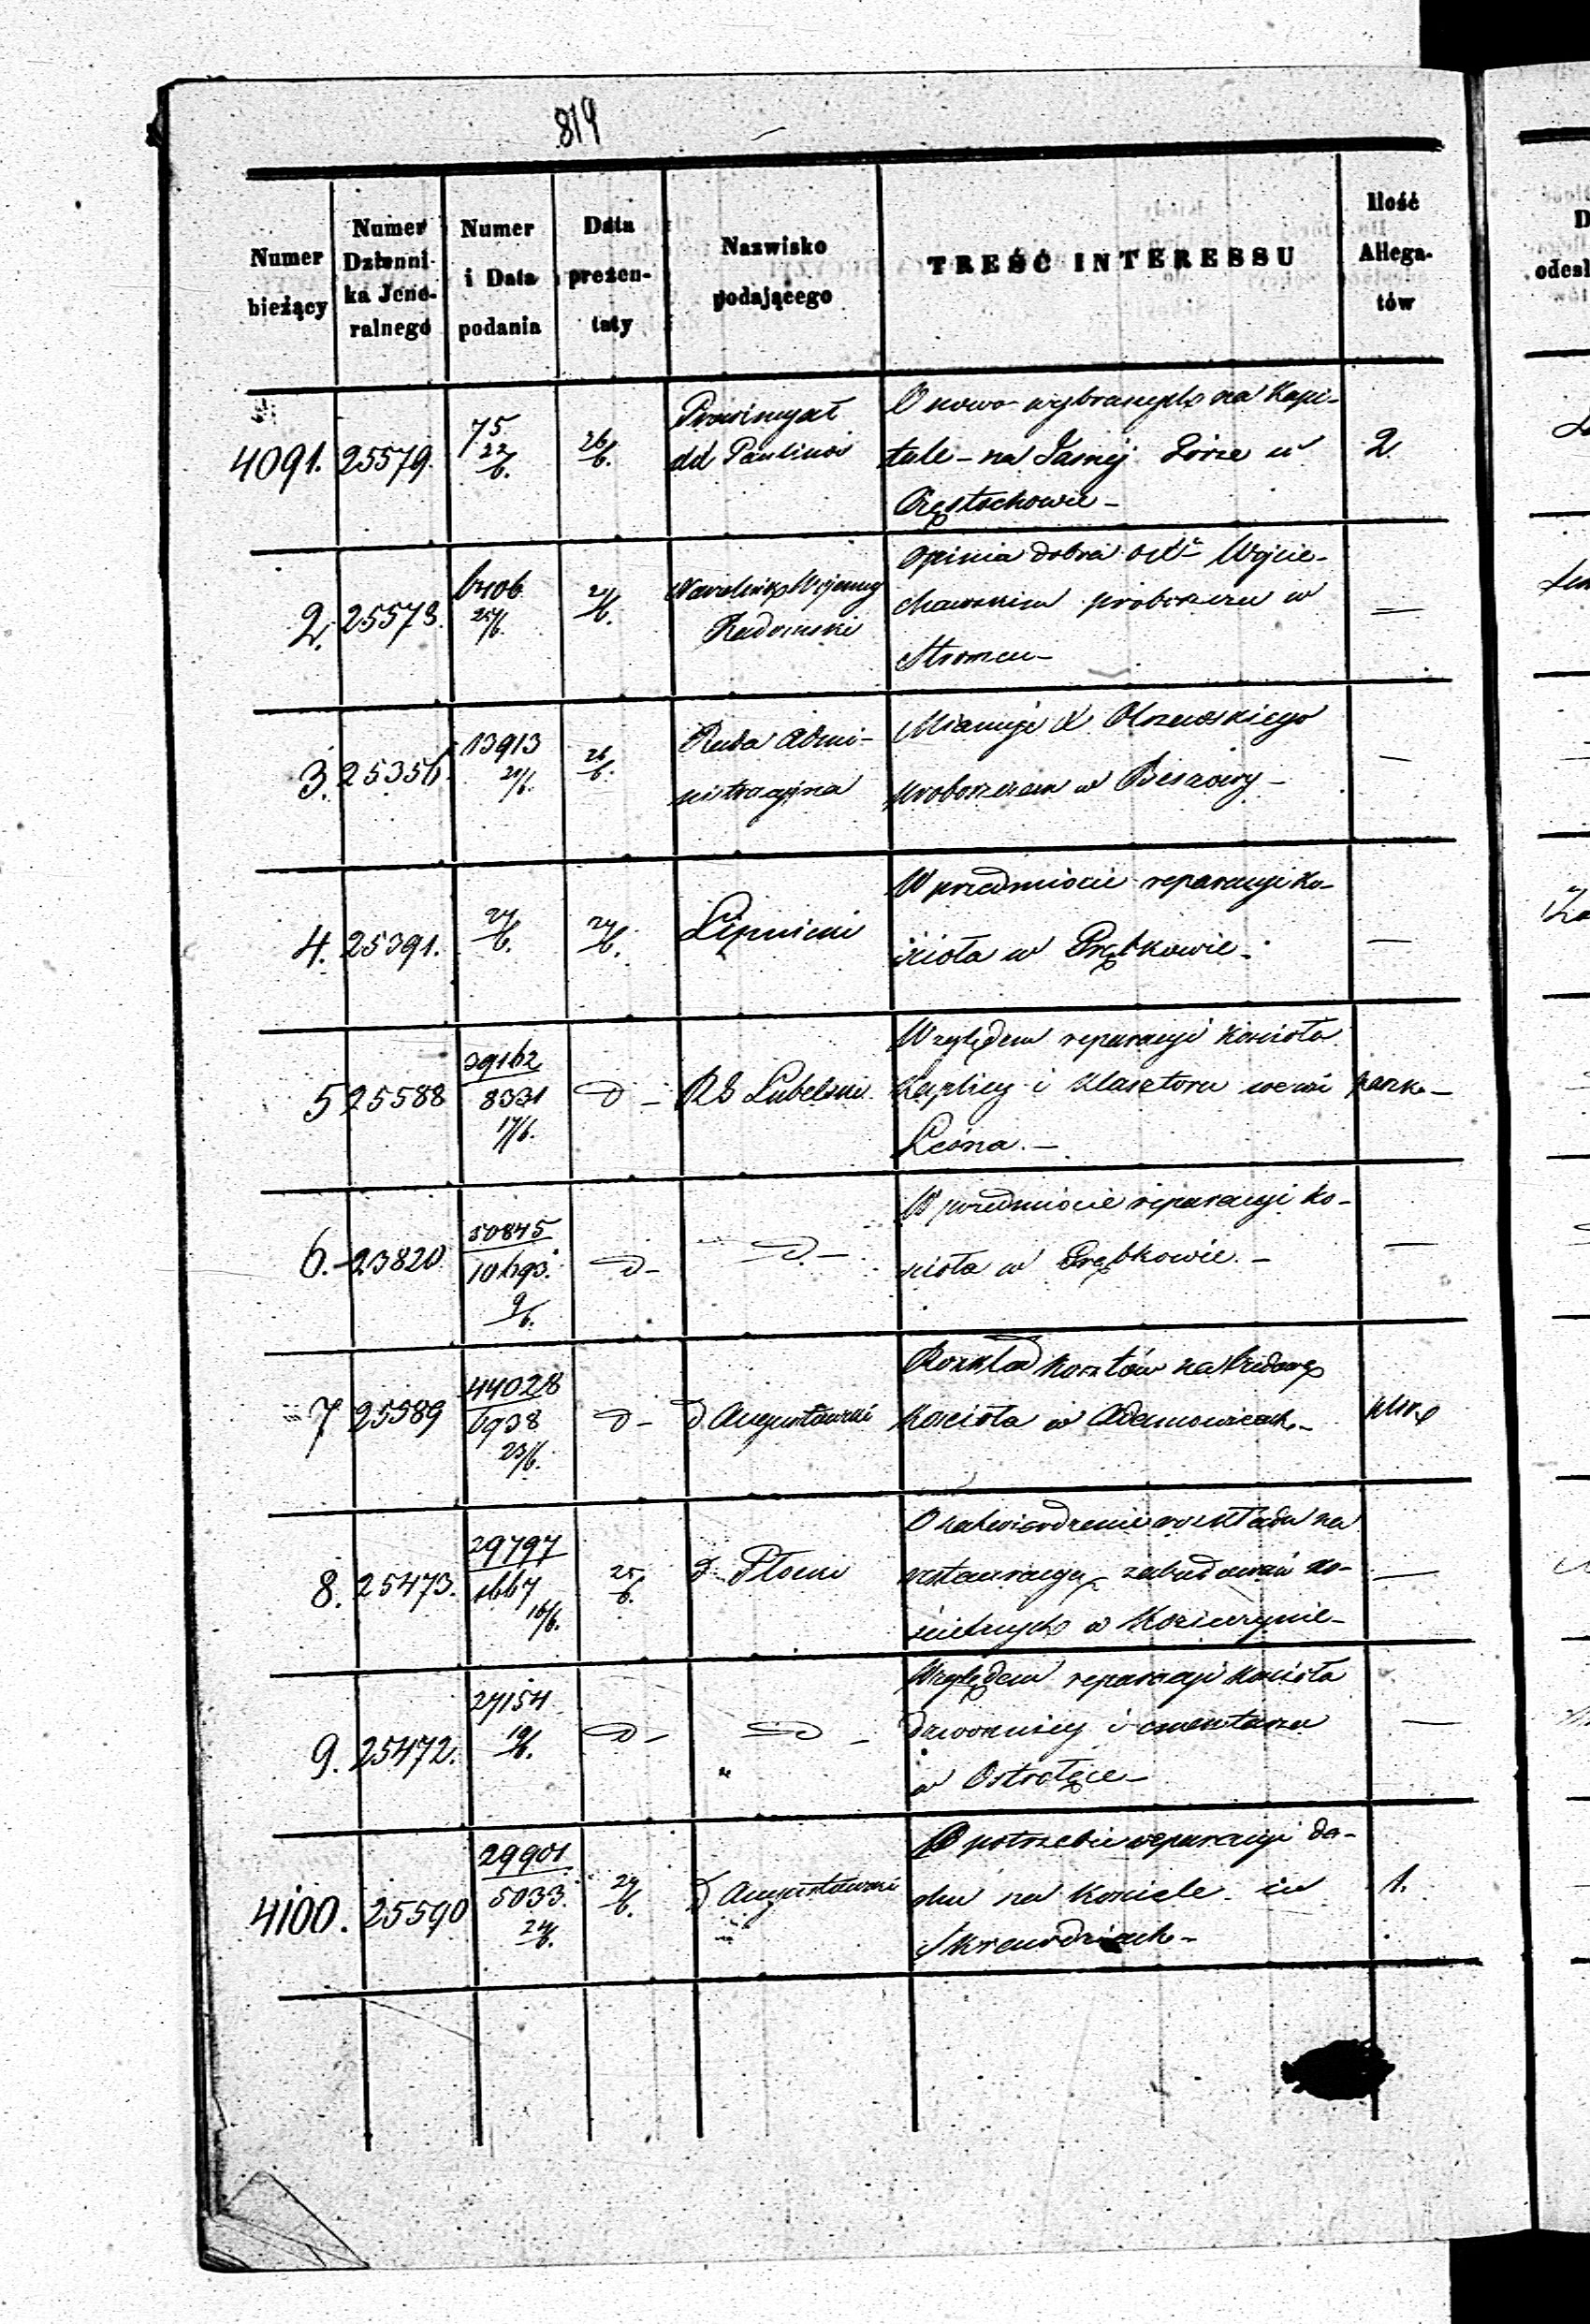 819
Numer bieżący
Numer Dzienni- ka Jene- ralnego
Numer i Data podania
Data prezen- taty
Nazwisko podającego
TREŚĆ INTERESSU
Ilość Allega- tów
4091. 25579. 75 22/6. 26/6. Prowincyał
dd Paulinów
O nowo wybranych na Kapi-
tule - na Jasnej Górze w
Częstochowie - 2
2. 25573. 26/6.
Radomski
Opinia dobra o X. Wojcie-
chowskim proboszczu w
Stromcu - —
3. 25356. 13913 21/6. 26/6. Rada Admi-
nistracyjna
Mianuje X Olszewskiego
proboszczem w Beszowy - —
4. 25391. 27/6. 27/6. Lipnicki
W przedmiocie reparacyi ko-
ścioła w Prębkowie. —
5 25588 39162 8331 17/6. D - RG Lubelski
Względem reparacyi kościoła
kaplicy i klasztoru we wsi
Leśna. -
6. 23820 50845 10693. 9/6. D - D. -
W przedmiocie reparacyi ko-
ścioła w Prębkowie. - —
7 25589 44028 6938 23/6. D - D Augustowski
Rozkład kosztów na budowę
kościoła w Adamowicach -
8. 25473. 29797 1667 16/6. 25/6. D Płocki
O zatwierdzenie rozkładu na
restauracyą zabudowań ko-
ścielnych w Koziczynie - —
9. 25472. 27154 19/6. D - D -
Względem reparacyi kościoła
dzwonnicy i cmentarza
w Ostrołęce - —
4100. 25590 29901 5033. 24/6. 27/6. D Augustowski
O potrzebie reparacyi da-
chu na kościele w
1.